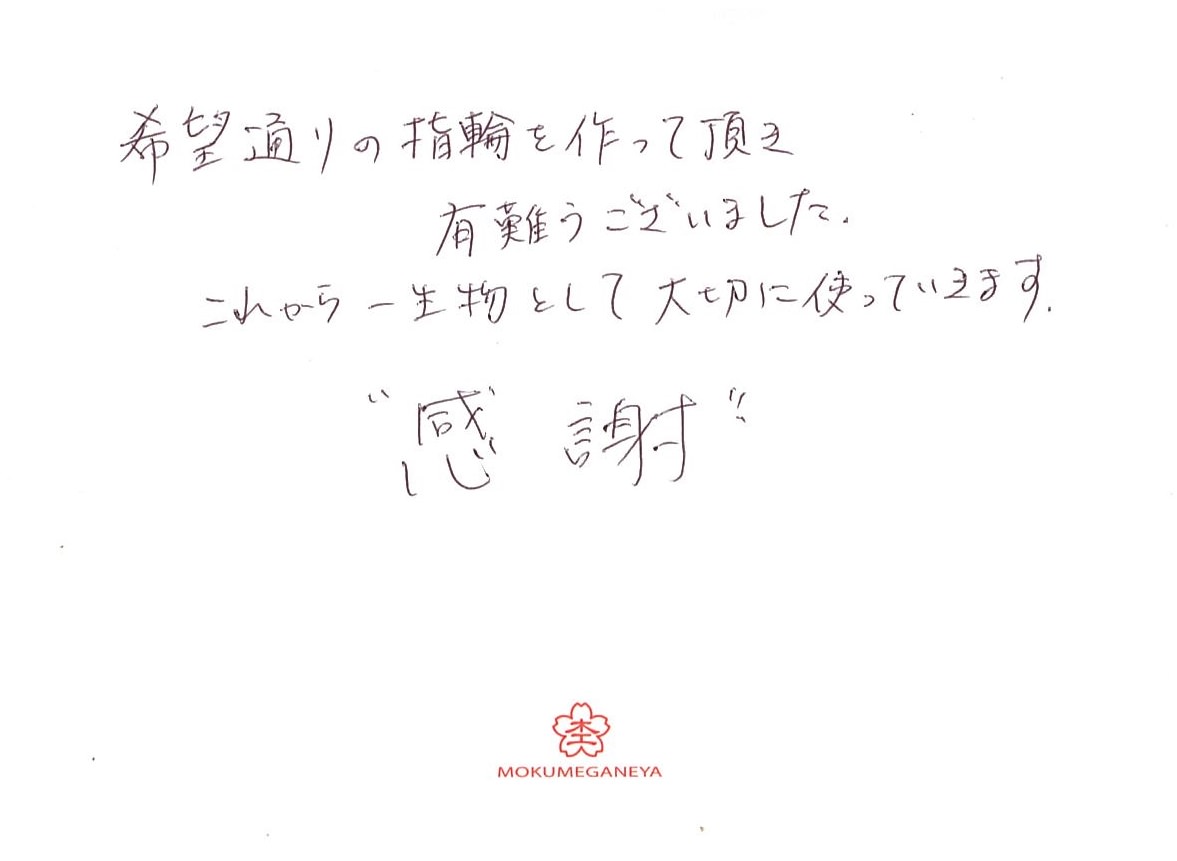 希望通りの指輪を作って頂き
有難うございました.
これから一生物として大切に使っていきます.
“感謝”
MOKUMEGANEYA